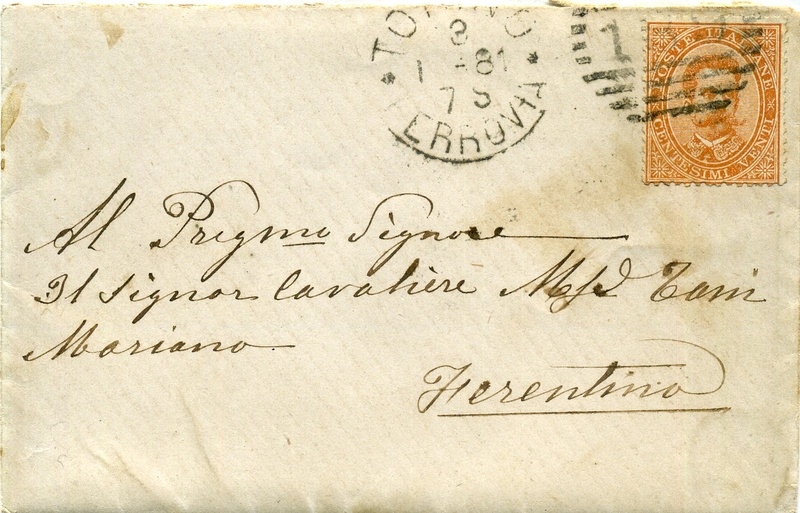 TORINO
3
1 -81
7 S
FERROVIA
1
POSTE ITALIANE
CENTESIMI VENTI
Al Pregmo Signore
Il Signor Cavalière
Mariano
Ferentino